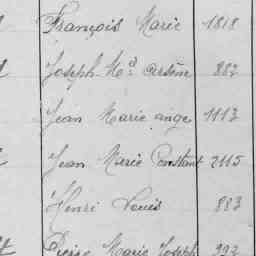 François Marie 1818
Joseph Md Arsène 882
Jean Marie ange 1113
Jean Marie Constant 2115
Henri Louis 883
Pierre Marie Joseph 993